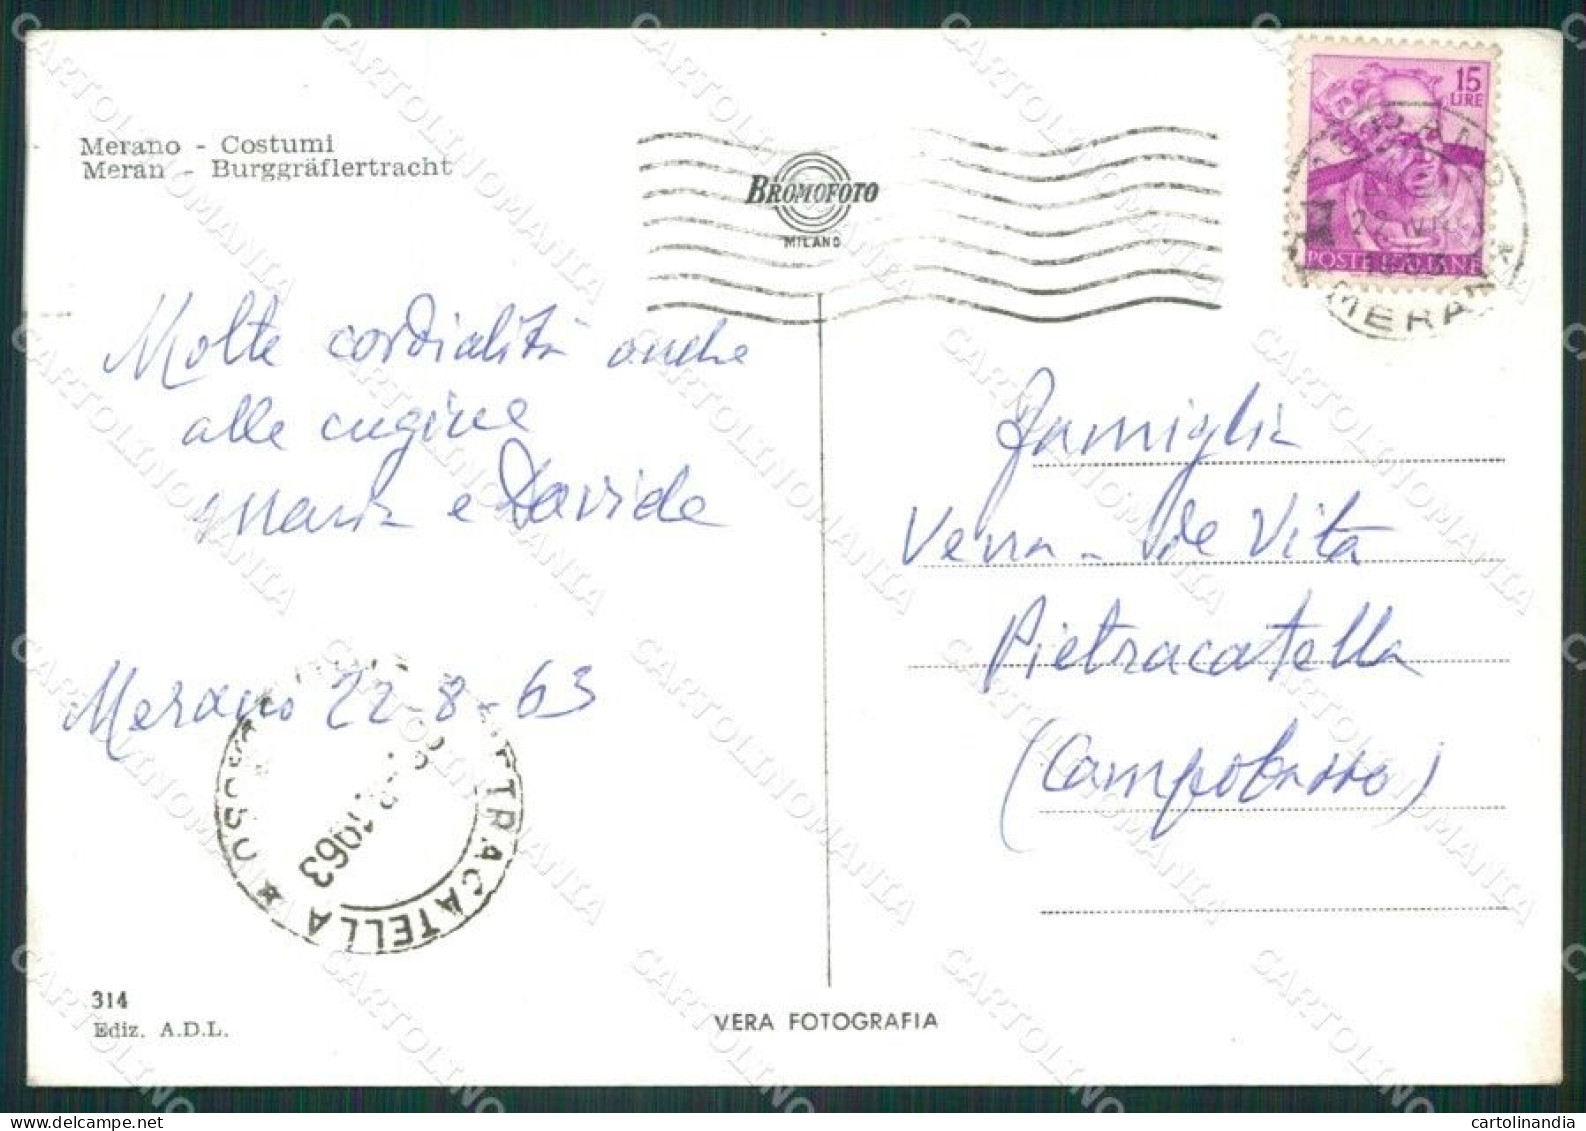 Merano - Costumi
Meran - Burggräflertracht
BROMOFOTO
MILANO
15
LIRE
POSTE ITALIANE
22 VIII
1963
MERANO
Molte cordialità anche
alle cugine
Maria e Davide
Merano 22-8-63
PIETRACATELLA
1963
Famiglia
Verra - De Vita
Pietracatella
(Campobasso)
314
Ediz. A.D.L.
VERA FOTOGRAFIA
CARTOLINOMANIA
cartolinandia